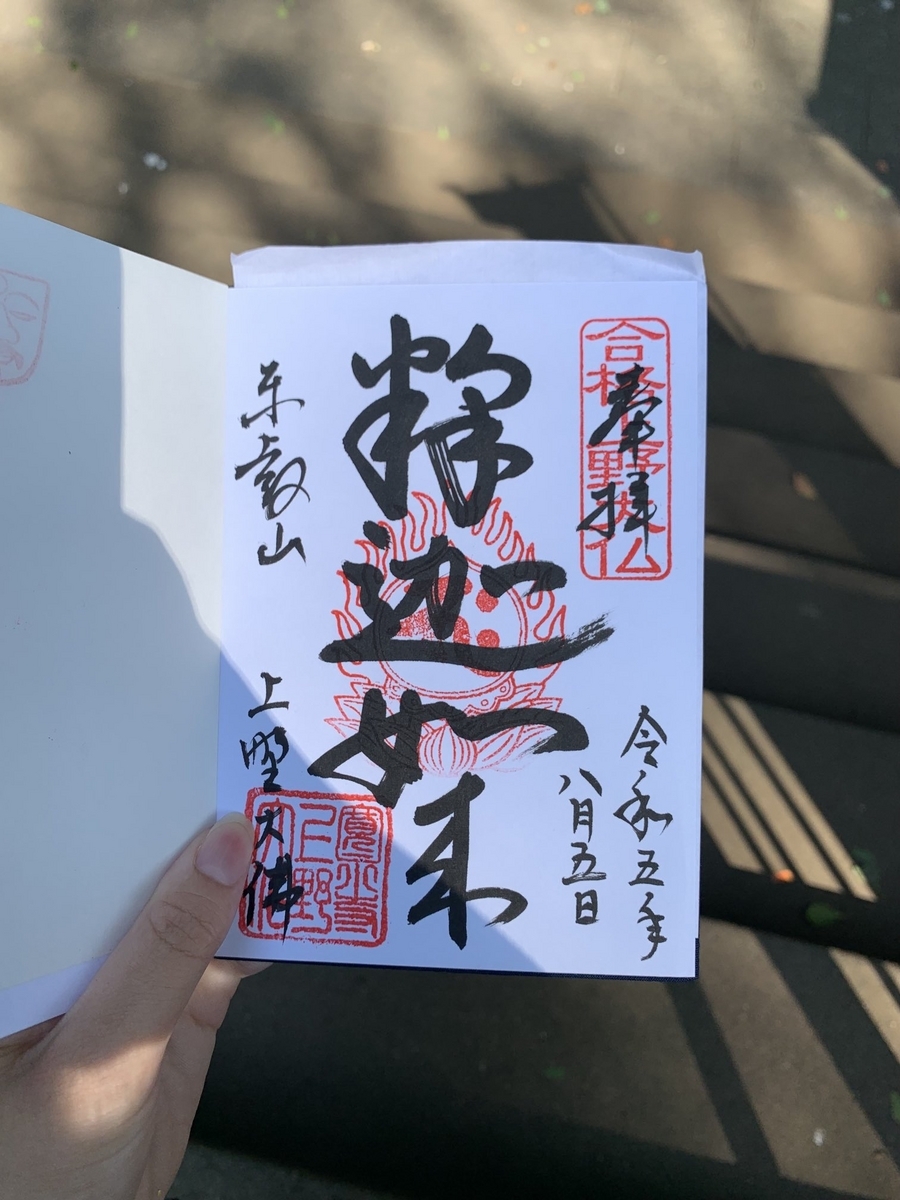 合格上野大仏
奉拝
令和五年
八月五日
釋迦如来
東叡山
上野大佛
寛永寺
上野